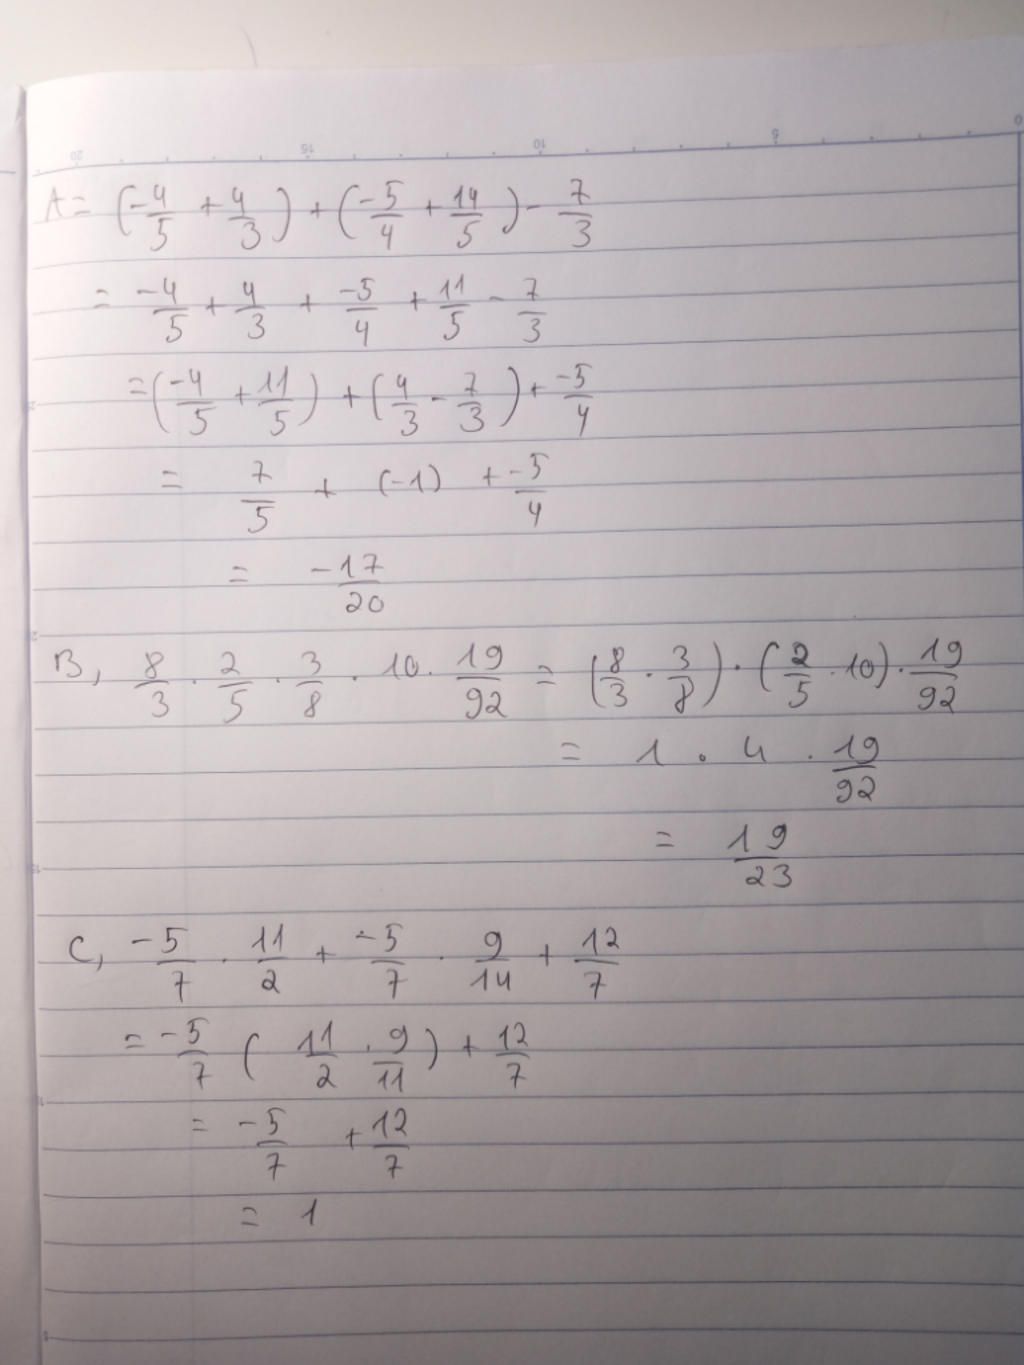 A = (-4/5 + 4/3) + (-5/4 + 14/5) - 7/3
= -4/5 + 4/3 + -5/4 + 11/5 - 7/3
= (-4/5 + 11/5) + (4/3 - 7/3) + -5/4
= 7/5 + (-1) + -5/4
= -17/20
B, 8/3 . 2/5 . 3/8 . 10 . 19/92 = (8/3 . 3/8) . (2/5 . 10) . 19/92
= 1 . 4 . 19/92
= 19/23
C, -5/7 . 11/2 + -5/7 . 9/14 + 12/7
= -5/7 ( 11/2 . 9/11 ) + 12/7
= -5/7 + 12/7
= 1